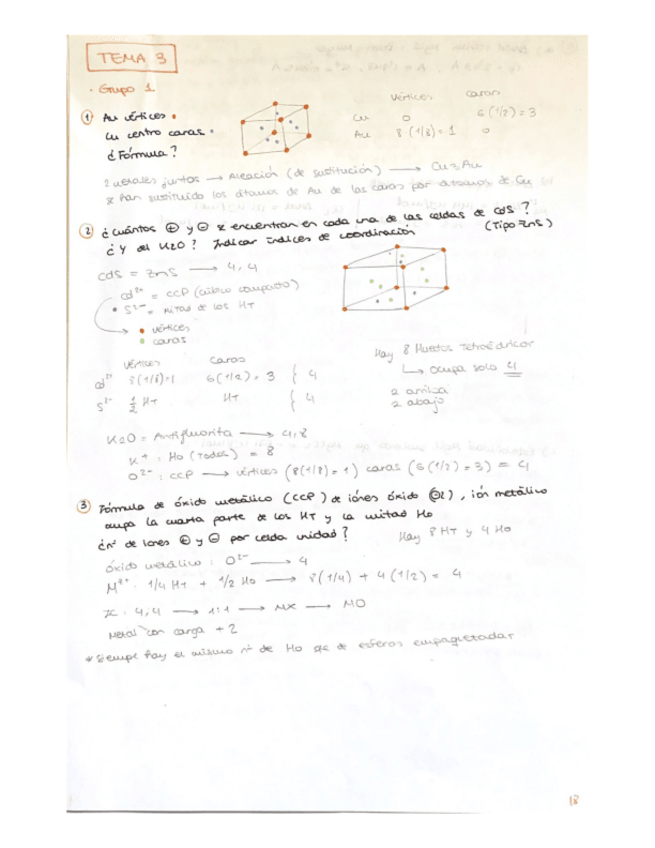 TEMA 3
• Grupo 1
① Au vértices •
Cu centro caras •
¿Fórmula?
vértices caras
Cu 0 6 (1/2) = 3
Au 8 (1/8) = 1 0
2 metales juntos → Aleación (de sustitución) → Cu3Au
se han sustituido los átomos de Au de las caras por átomos de Cu
② ¿Cuántos ⊕ y ⊖ se encuentran en cada una de las celdas de CdS?
(Tipo ZnS)
¿Y del K2O? Indicar índices de coordinación
CdS = ZnS → 4,4
Cd2+ = CCP (cúbico compacto)
• S2- = mitad de los HT
• vértices
• caras
vértices caras
Cd2+ 8 (1/8)=1 6(1/2) = 3 } 4
S2- 1/2 HT HT } 4
Hay 8 Huecos Tetraédricos
↳ ocupa solo 4
2 arriba
2 abajo
K2O = Antifluorita → 4,8
K+ : Ho (Todos) = 8
O2- : CCP → vértices (8(1/8) = 1) caras (6 (1/2) = 3) = 4
③ Fórmula de óxido metálico (CCP) de iones óxido, ión metálico
ocupa la cuarta parte de los HT y la mitad Ho
¿nº de iones ⊕ y ⊖ por celda unidad? Hay 8 HT y 4 Ho
óxido metálico : O2- → 4
1/4 HT + 1/2 Ho → 8(1/4) + 4 (1/2) = 4
4,4 → 1:1 → MX → MO
Metal con carga +2
* siempre hay el mismo nº de Ho que de esferas empaquetadas
18